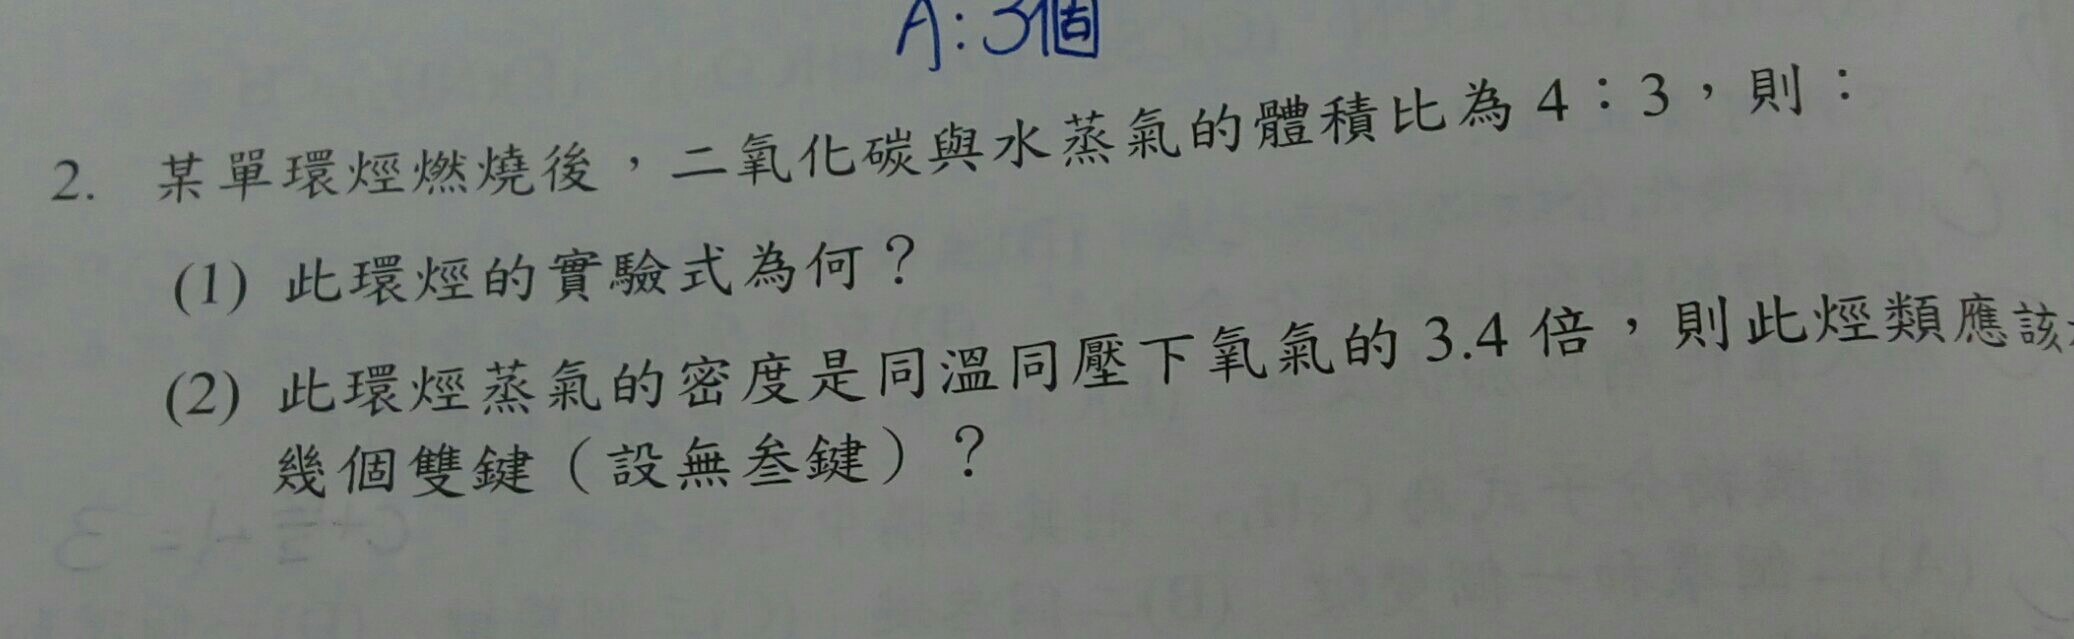 A:3個
2. 某單環烴燃燒後，二氧化碳與水蒸氣的體積比為4：3，則：
(1) 此環烴的實驗式為何？
(2) 此環烴蒸氣的密度是同溫同壓下氧氣的3.4倍，則此烴類應該
幾個雙鍵（設無叁鍵）？